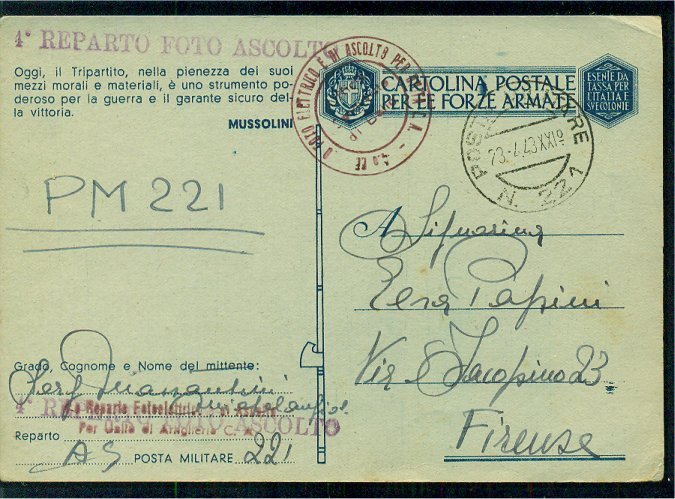 4° REPARTO FOTO ASCOLTO
Oggi, il Tripartito, nella pienezza dei suoi
mezzi morali e materiali, è uno strumento po-
deroso per la guerra e il garante sicuro del-
la vittoria.
MUSSOLINI
CARTOLINA POSTALE
PER LE FORZE ARMATE
ESENTE DA
TASSA PER
L'ITALIA E
SVE COLONIE
POSTA MILITARE
23.4.43 XXI°
N. 221
PM 221
A Signorina
Papini
Via S Jacopino 23
Firenze
Grado, Cognome e Nome del mittente:
Serg
4° REPARTO ASCOLTO
Per Unità di Artiglieria
Reparto
AS POSTA MILITARE 221